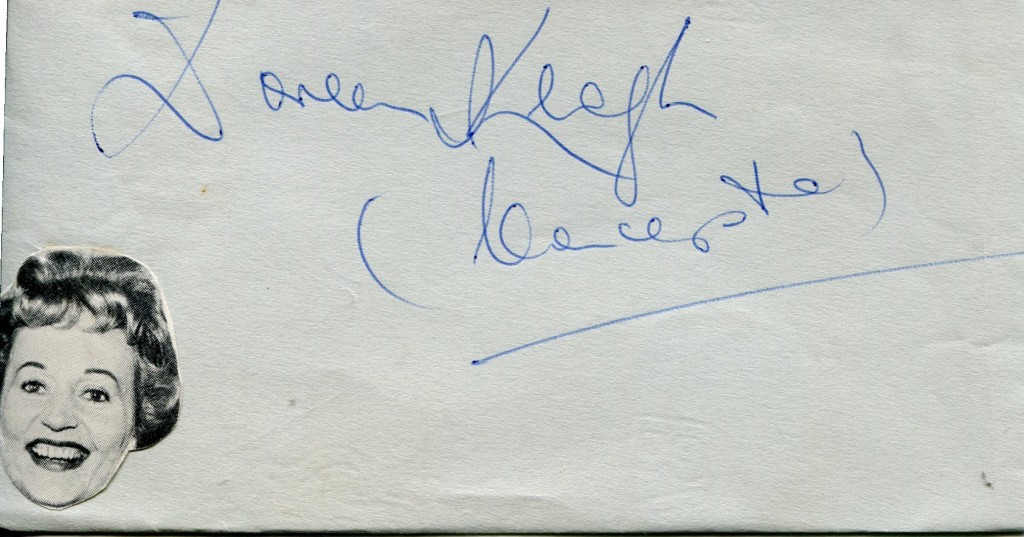 Doreen Keogh
(Concepta)